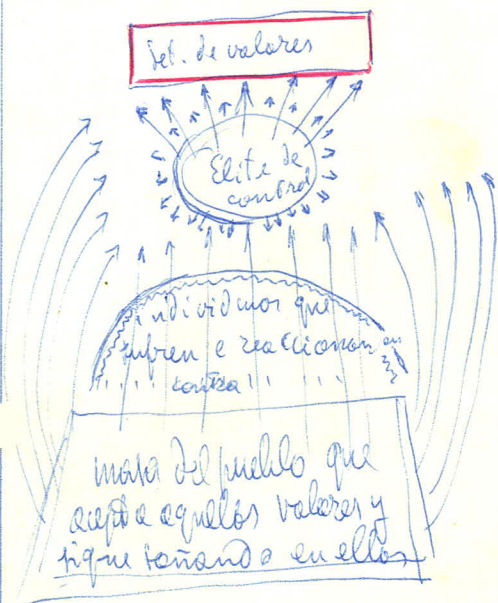 Det. de valores
Elite de
control
individuos que
sufren e reaccionan en
contra
masa del pueblo que
acepta aquellos valores y
sigue soñando en ellos